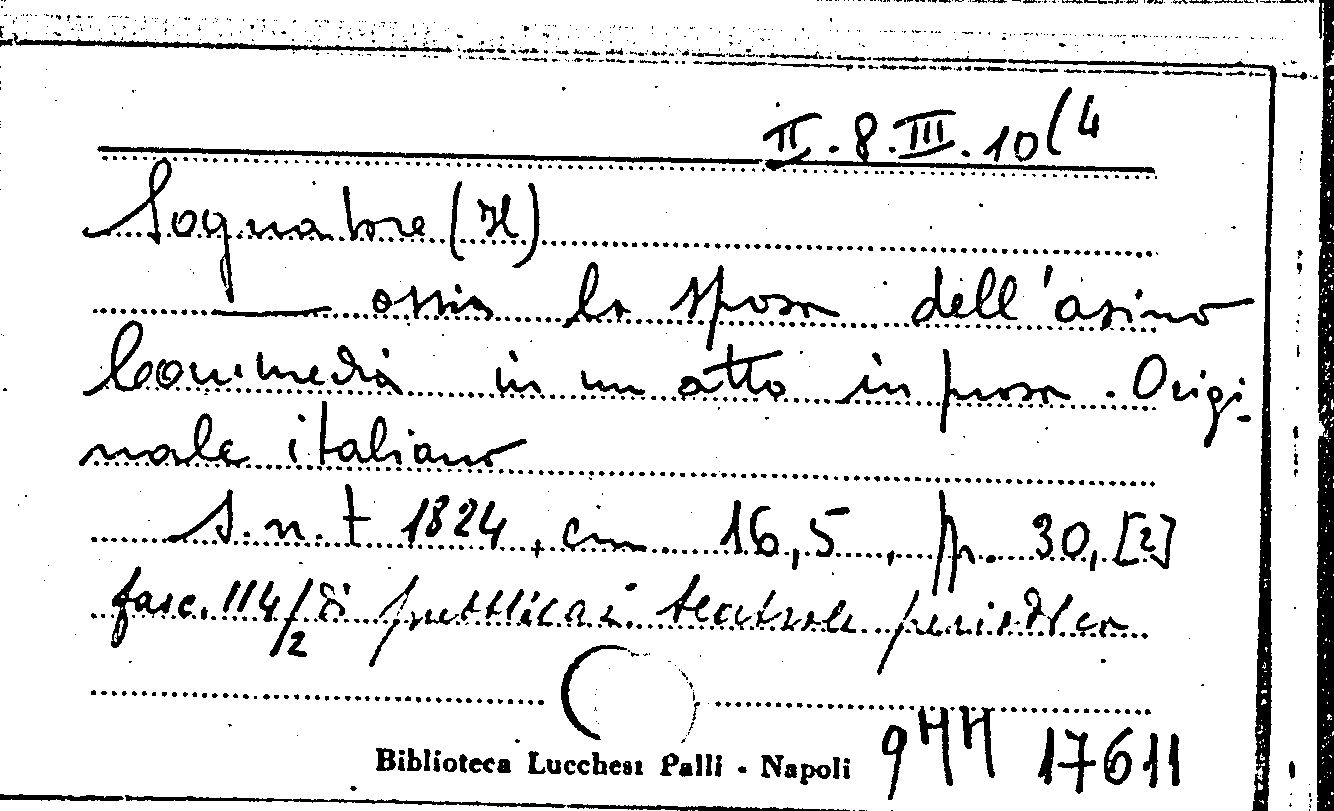 II.8.III.10(4
Sognatore (Il)
ossia la sposa dell'asino
Commedia in un atto in prosa. Origi-
nale italiano
S.n.t 1824, cm 16,5, pp. 30, [2]
fasc. 114/2 di pubblicaz. teatrale periodica
Biblioteca Lucchesi Palli - Napoli
17611